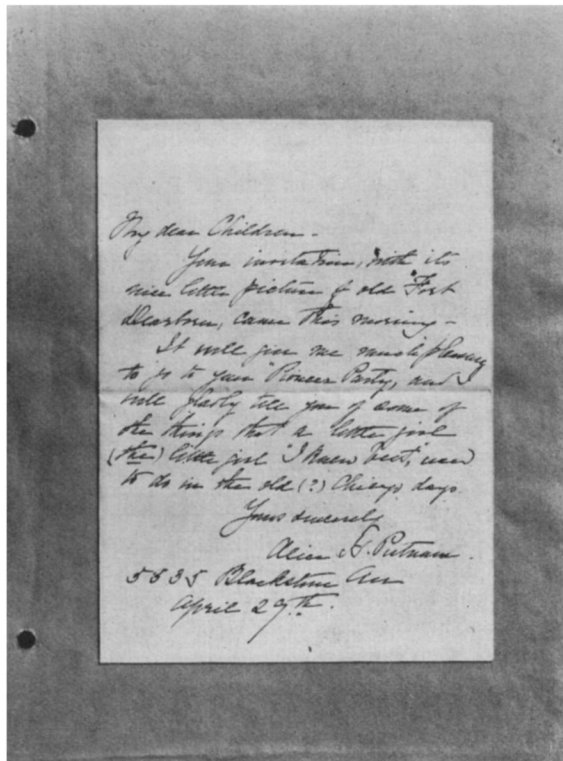 My dear Children -
Your invitation, with its
nice little picture of old "Fort
Dearborn, came this morning -
It will give me much pleasure
to go to your Pioneer Party, and
will gladly tell you of some of
the things that a little girl
(the) little girl "I knew best", used
to do in the old (?) Chicago days.
Yours sincerely
Alice H. Putnam.
5535 Blackstone Ave
April 29th.